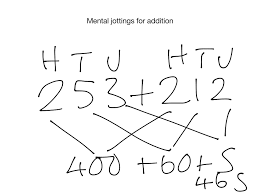 Mental jottings for addition
H T U H T U
253+212
400 +60+5
465